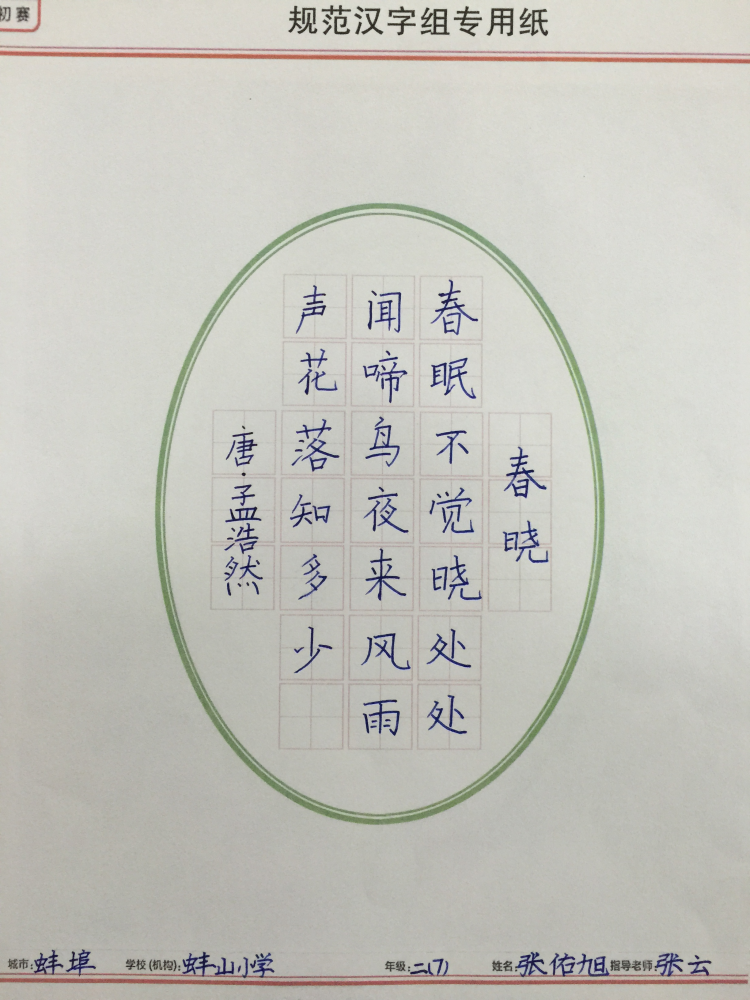 初赛
规范汉字组专用纸
春晓
春眠不觉晓处处
闻啼鸟夜来风雨
声花落知多少
唐·孟浩然
城市:蚌埠 学校(机构):蚌山小学 年级:二(7) 姓名:张佑旭 指导老师:张云